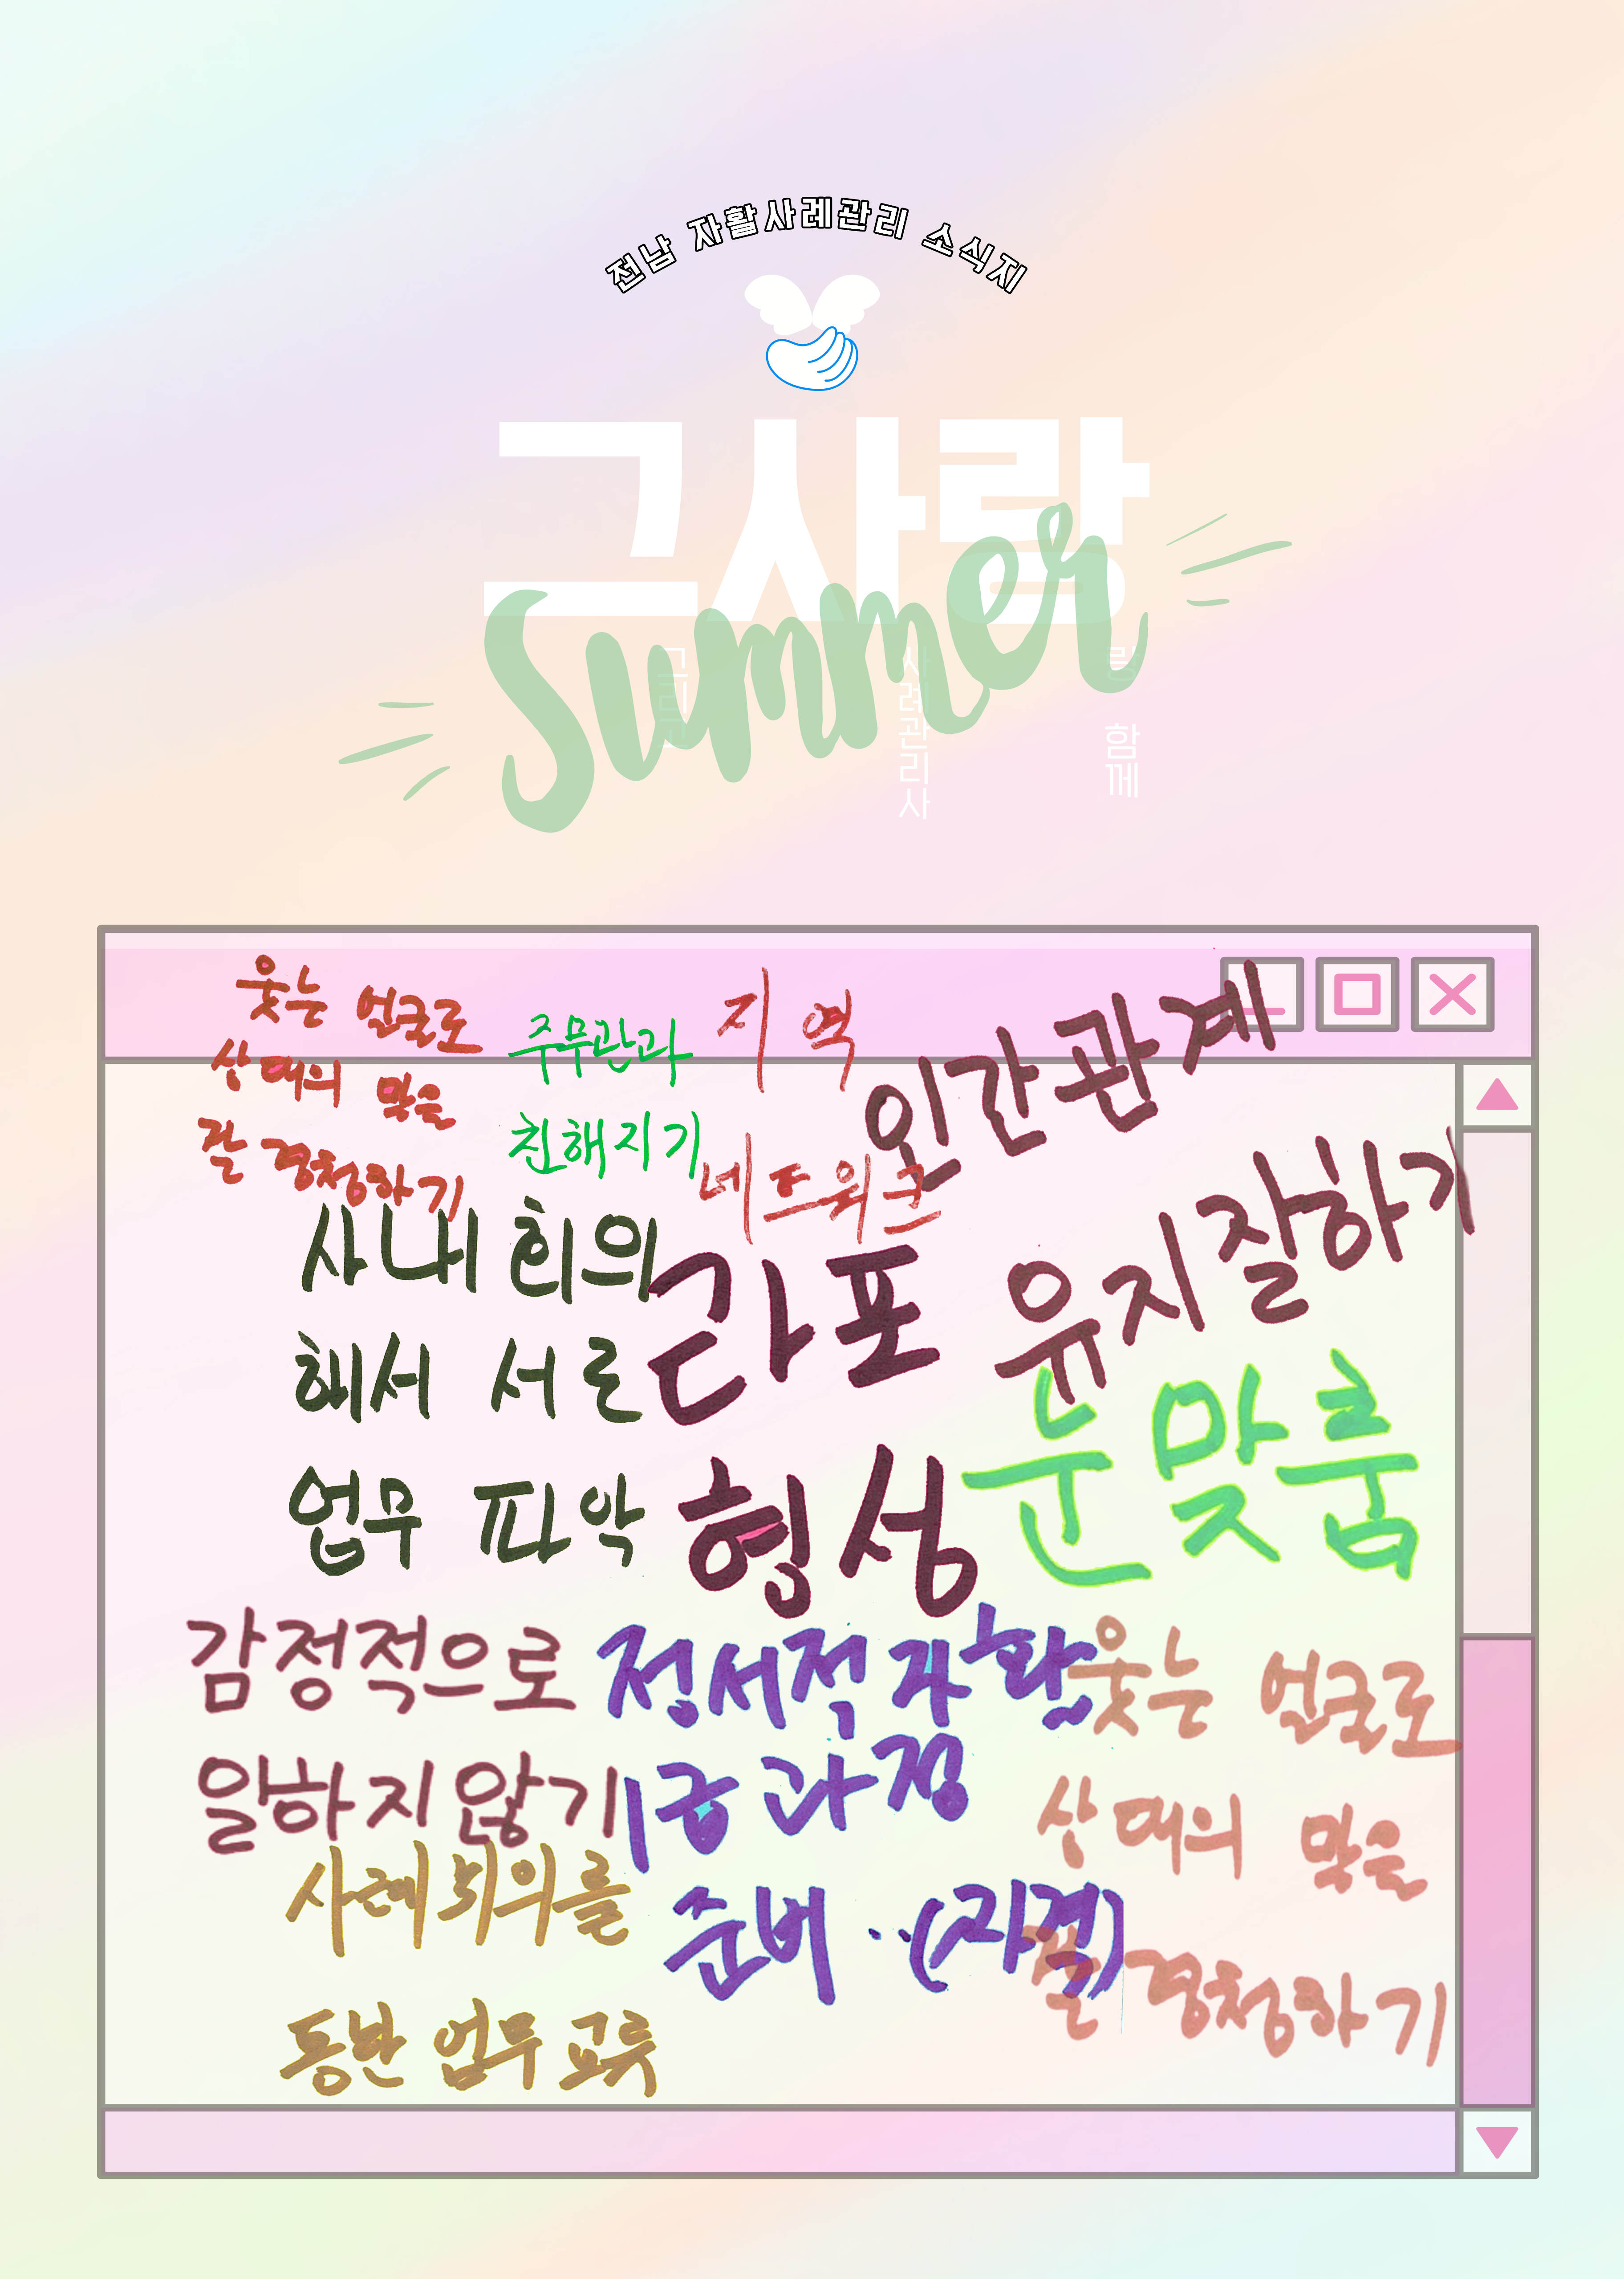 전남 자활사례관리 소식지
그사랑
Summer
그리고
사례관리사
랑 함께
웃는 얼굴로
상대의 말을
잘 경청하기
주무관과
친해지기
지역
네트워크
인간관계
유지잘하기
사내 회의
해서 서로
업무 파악
라포
형성
눈맞춤
감정적으로
일하지않기
정서적 자활
1급 과정
준비 ..(자격)
웃는 얼굴로
상대의 말을
잘 경청하기
사례회의를
동반 업무 교류